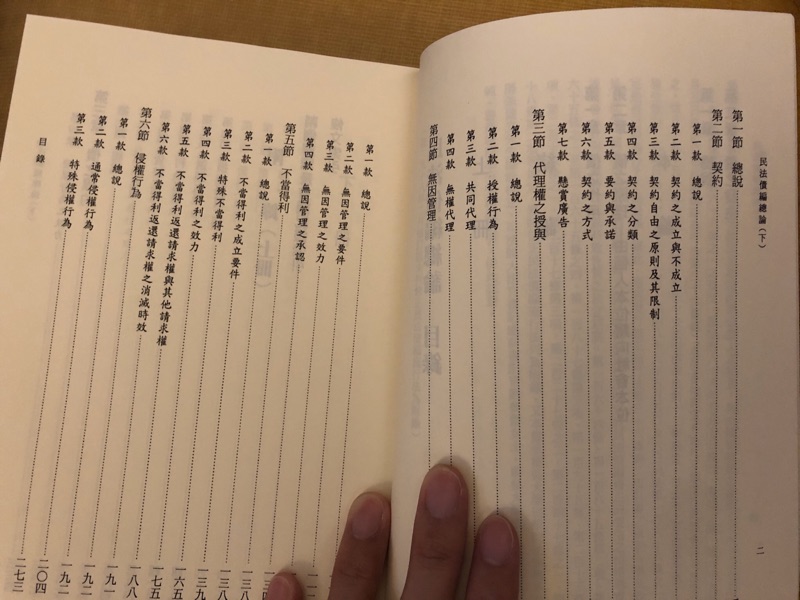 民法債編總論(下)
二
第一節 總說
第二節 契約
第一款 總說
第二款 契約之成立與不成立
第三款 契約自由之原則及其限制
第四款 契約之分類
第五款 要約與承諾
第六款 契約之方式
第七款 懸賞廣告
第三節 代理權之授與
第一款 總說
第二款 授權行為
第三款 共同代理
第四款 無權代理
第四節 無因管理
第一款 總說
第二款 無因管理之要件
第三款 無因管理之效力
第四款 無因管理之承認
第五節 不當得利 一三八
第一款 總說 一三八
第二款 不當得利之成立要件 一三九
第三款 特殊不當得利 一六五
第四款 不當得利之效力 一七五
第五款 不當得利返還請求權與其他請求權 一八八
第六款 不當得利返還請求權之消滅時效 一九一
第六節 侵權行為 一九二
第一款 總說 一九二
第二款 通常侵權行為 二〇四
第三款 特殊侵權行為 二七三
目錄